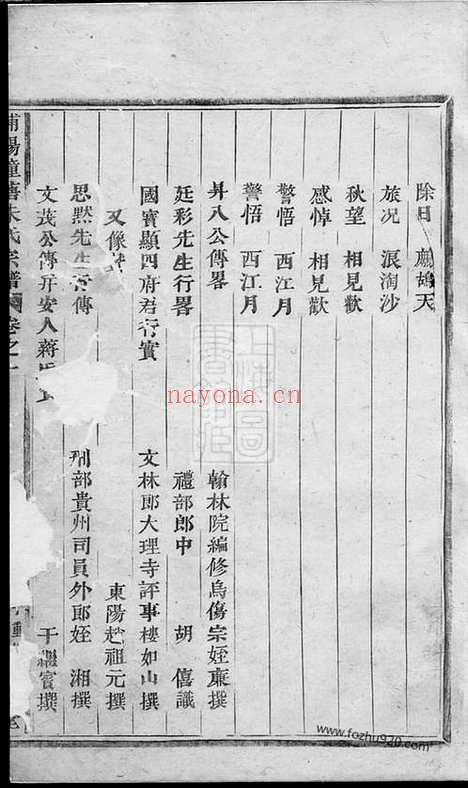 除日 鷓鴣天
旅况 浪淘沙
秋望 相見歡
感悼 相見歡
警悟 西江月
警悟 西江月
昇八公傳畧 翰林院編修烏傷宗姪廉撰
廷彩先生行畧 禮部郎中 胡 僖識
國實顯四府君行實 文林郎大理寺評事樓如山撰
又像 東陽趙祖元撰
思默先生行傳 刑部貴州司員外郎姪 湘撰
文茂公傳并安人蔣 于 實撰
浦陽 朱氏宗譜 卷之
上海圖書館藏
nayona.cn
www.fozhu920.com